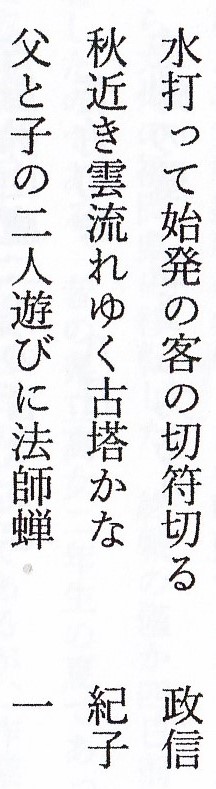 水打って始発の客の切符切る　政信
秋近き雲流れゆく古塔かな　紀子
父と子の二人遊びに法師蝉　一